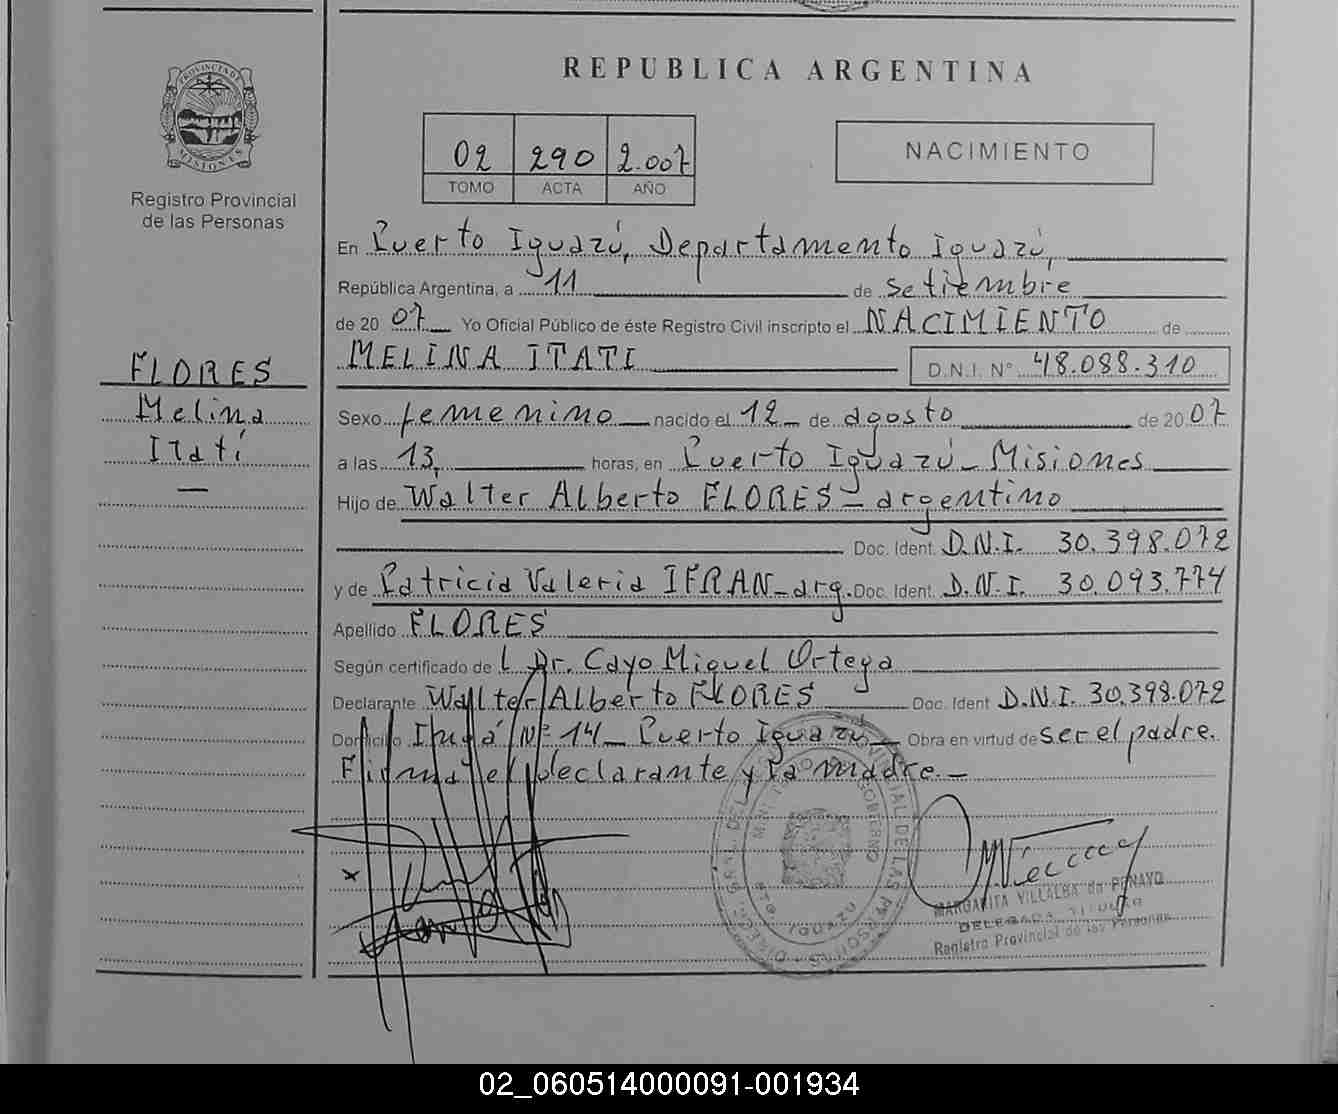 REPUBLICA ARGENTINA
PROVINCIA DE
MISIONES
Registro Provincial
de las Personas
02 290 2.007
TOMO ACTA AÑO
NACIMIENTO
En Puerto Iguazú, Departamento Iguazú,
República Argentina, a 11 de setiembre
de 20 07 Yo Oficial Público de éste Registro Civil inscripto el NACIMIENTO de
MELINA ITATI D.N.I. N° 48.088.310
FLORES
Melina
Itatí
—
Sexo femenino nacido el 12 de agosto de 20 07
a las 13, horas, en Puerto Iguazú - Misiones
Hijo de Walter Alberto FLORES - argentino
Doc. Ident. D.N.I. 30.398.072
y de Patricia Valeria IFRAN - arg. Doc. Ident. D.N.I. 30.093.774
Apellido FLORES
Según certificado de l Dr. Cayo Miguel Ortega
Declarante Walter Alberto FLORES Doc. Ident D.N.I. 30.398.072
Domicilio N° 14 - Puerto Iguazú - Obra en virtud de ser el padre.
Firma el declarante y la madre. -
x
MARGARITA VILLALBA de PENAYO
DELEGADA TITULAR
Registro Provincial de las Personas
02_060514000091-001934